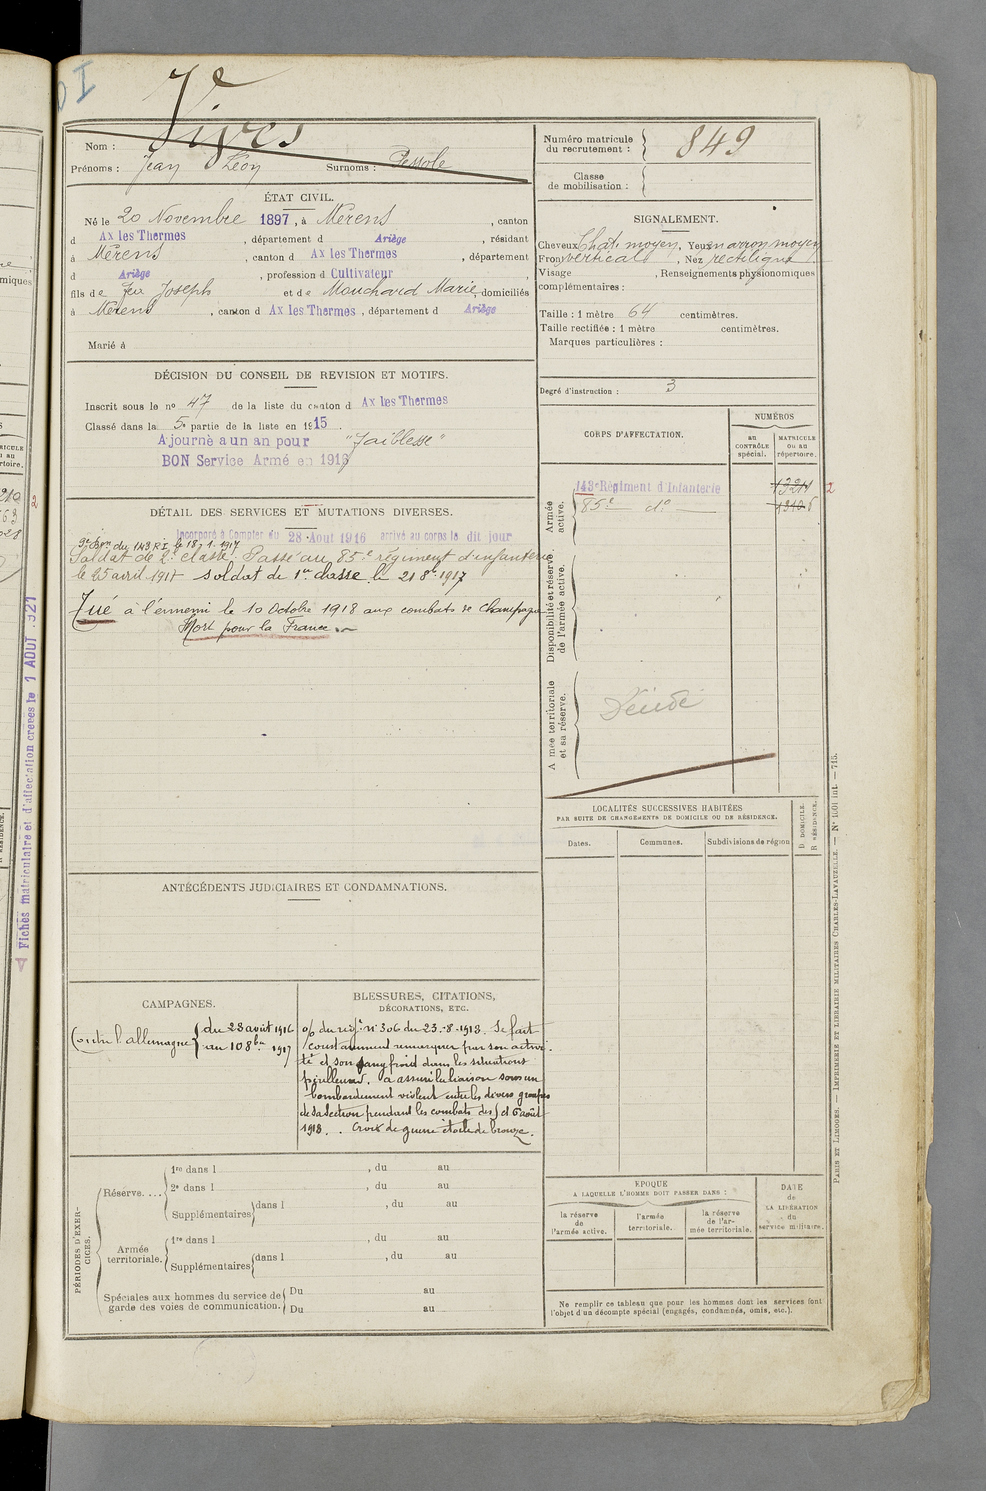 I
Vives
Nom :
Prénoms : Jean Léon Surnoms : Pessole
Numéro matricule du recrutement : 849
Classe de mobilisation :
ÉTAT CIVIL.
Né le 20 Novembre 1897, à Mérens, canton
d Ax les Thermes, département d Ariège, résidant
à Mérens, canton d Ax les Thermes, département
d Ariège, profession d Cultivateur,
fils de feu Joseph et de Mouchard Marie, domiciliés
à Mérens, canton d Ax les Thermes, département d Ariège
Marié à
SIGNALEMENT.
Cheveux Chat. moyen, Yeux marron moyen
Front verticale, Nez rectiligne
Visage , Renseignements physionomiques
complémentaires :
Taille : 1 mètre 64 centimètres.
Taille rectifiée : 1 mètre centimètres.
Marques particulières :
Degré d'instruction : 3
DÉCISION DU CONSEIL DE REVISION ET MOTIFS.
Inscrit sous le no 47 de la liste du canton d Ax les Thermes
Classé dans la 5e partie de la liste en 1915.
Ajourné a un an pour "Faiblesse"
BON Service Armé en 1916
DÉTAIL DES SERVICES ET MUTATIONS DIVERSES.
Incorporé à Compter du 28 Aout 1916 arrivé au corps le dit jour
9e Bon du 143 R.I. le 18.1.1917
Soldat de 2e classe. Passé au 85e régiment d'infanterie
le 25 avril 1917 soldat de 1re classe le 21 8bre 1917
Tué à l'ennemi le 10 Octobre 1918 aux combats de Champagne
Mort pour la France.
CORPS D'AFFECTATION.
NUMÉROS
au CONTRÔLE spécial.
MATRICULE ou au répertoire.
Armée active.
143e Régiment d'Infanterie
85e do
2
Disponibilité et réserve de l'armée active.
Armée territoriale et sa réserve.
LOCALITÉS SUCCESSIVES HABITÉES
PAR SUITE DE CHANGEMENTS DE DOMICILE OU DE RÉSIDENCE.
D. DOMICILE.
R. RÉSIDENCE.
Dates.
Communes.
Subdivisions de région
ANTÉCÉDENTS JUDICIAIRES ET CONDAMNATIONS.
CAMPAGNES.
Contre l'allemagne du 28 août 1916
au 10 8bre 1917
BLESSURES, CITATIONS,
DÉCORATIONS, ETC.
o/ du régt. n° 306 du 23-8-1918. Se fait
constamment remarquer par son activi-
té et son sang froid dans les situations
périlleuses. a assuré la liaison sous un
bombardement violent entre les divers groupes
de sa section pendant les combats des 5 et 6 août
1918. . Croix de guerre étoile de bronze.
PÉRIODES D'EXERCICES.
Réserve....
1re dans l , du au
2e dans l , du au
Supplémentaires dans l , du au
Armée territoriale.
1re dans l , du au
Supplémentaires dans l , du au
Spéciales aux hommes du service de garde des voies de communication.
Du au
Du au
ÉPOQUE
A LAQUELLE L'HOMME DOIT PASSER DANS :
la réserve de l'armée active.
l'armée territoriale.
la réserve de l'armée territoriale.
DATE
de LA LIBÉRATION du service militaire.
Ne remplir ce tableau que pour les hommes dont les services font
l'objet d'un décompte spécial (engagés, condamnés, omis, etc.).
PARIS ET LIMOGES. — IMPRIMERIE ET LIBRAIRIE MILITAIRES CHARLES-LAVAUZELLE. — No 1001 int. — 715.
Fiches matriculaire et d'affectation créées le 1 AOUT 1921
2